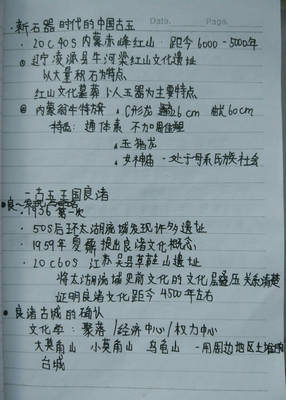 · 新石器时代的中国古玉
Date. Page.
· 20C40S 内蒙赤峰红山 距今6000-5000年
① 辽宁凌源县牛河梁红山文化遗址
以大量积石为特点
红山文化墓葬 以玉器为主要特点
② 内蒙翁牛特旗 C形龙 26cm 60cm
特点: 通体素 不加
▲ 玉猪龙
▲ 女神庙 - 处于母系氏族社会
- 古玉王国良渚
· 1936 第一次
· 50S后环太湖流域发现许多遗址
· 1959年 夏鼐 提出良渚文化概念
· 20C60S 江苏吴县草鞋山遗址
将太湖流域史前文化的文化层叠压关系清楚
证明良渚文化距今4500年左右
● 良渚古城的确认
文化学: 聚落/经济中心/权力中心
大莫角山 小莫角山 乌龟山 - 用周边地区土堆
台城